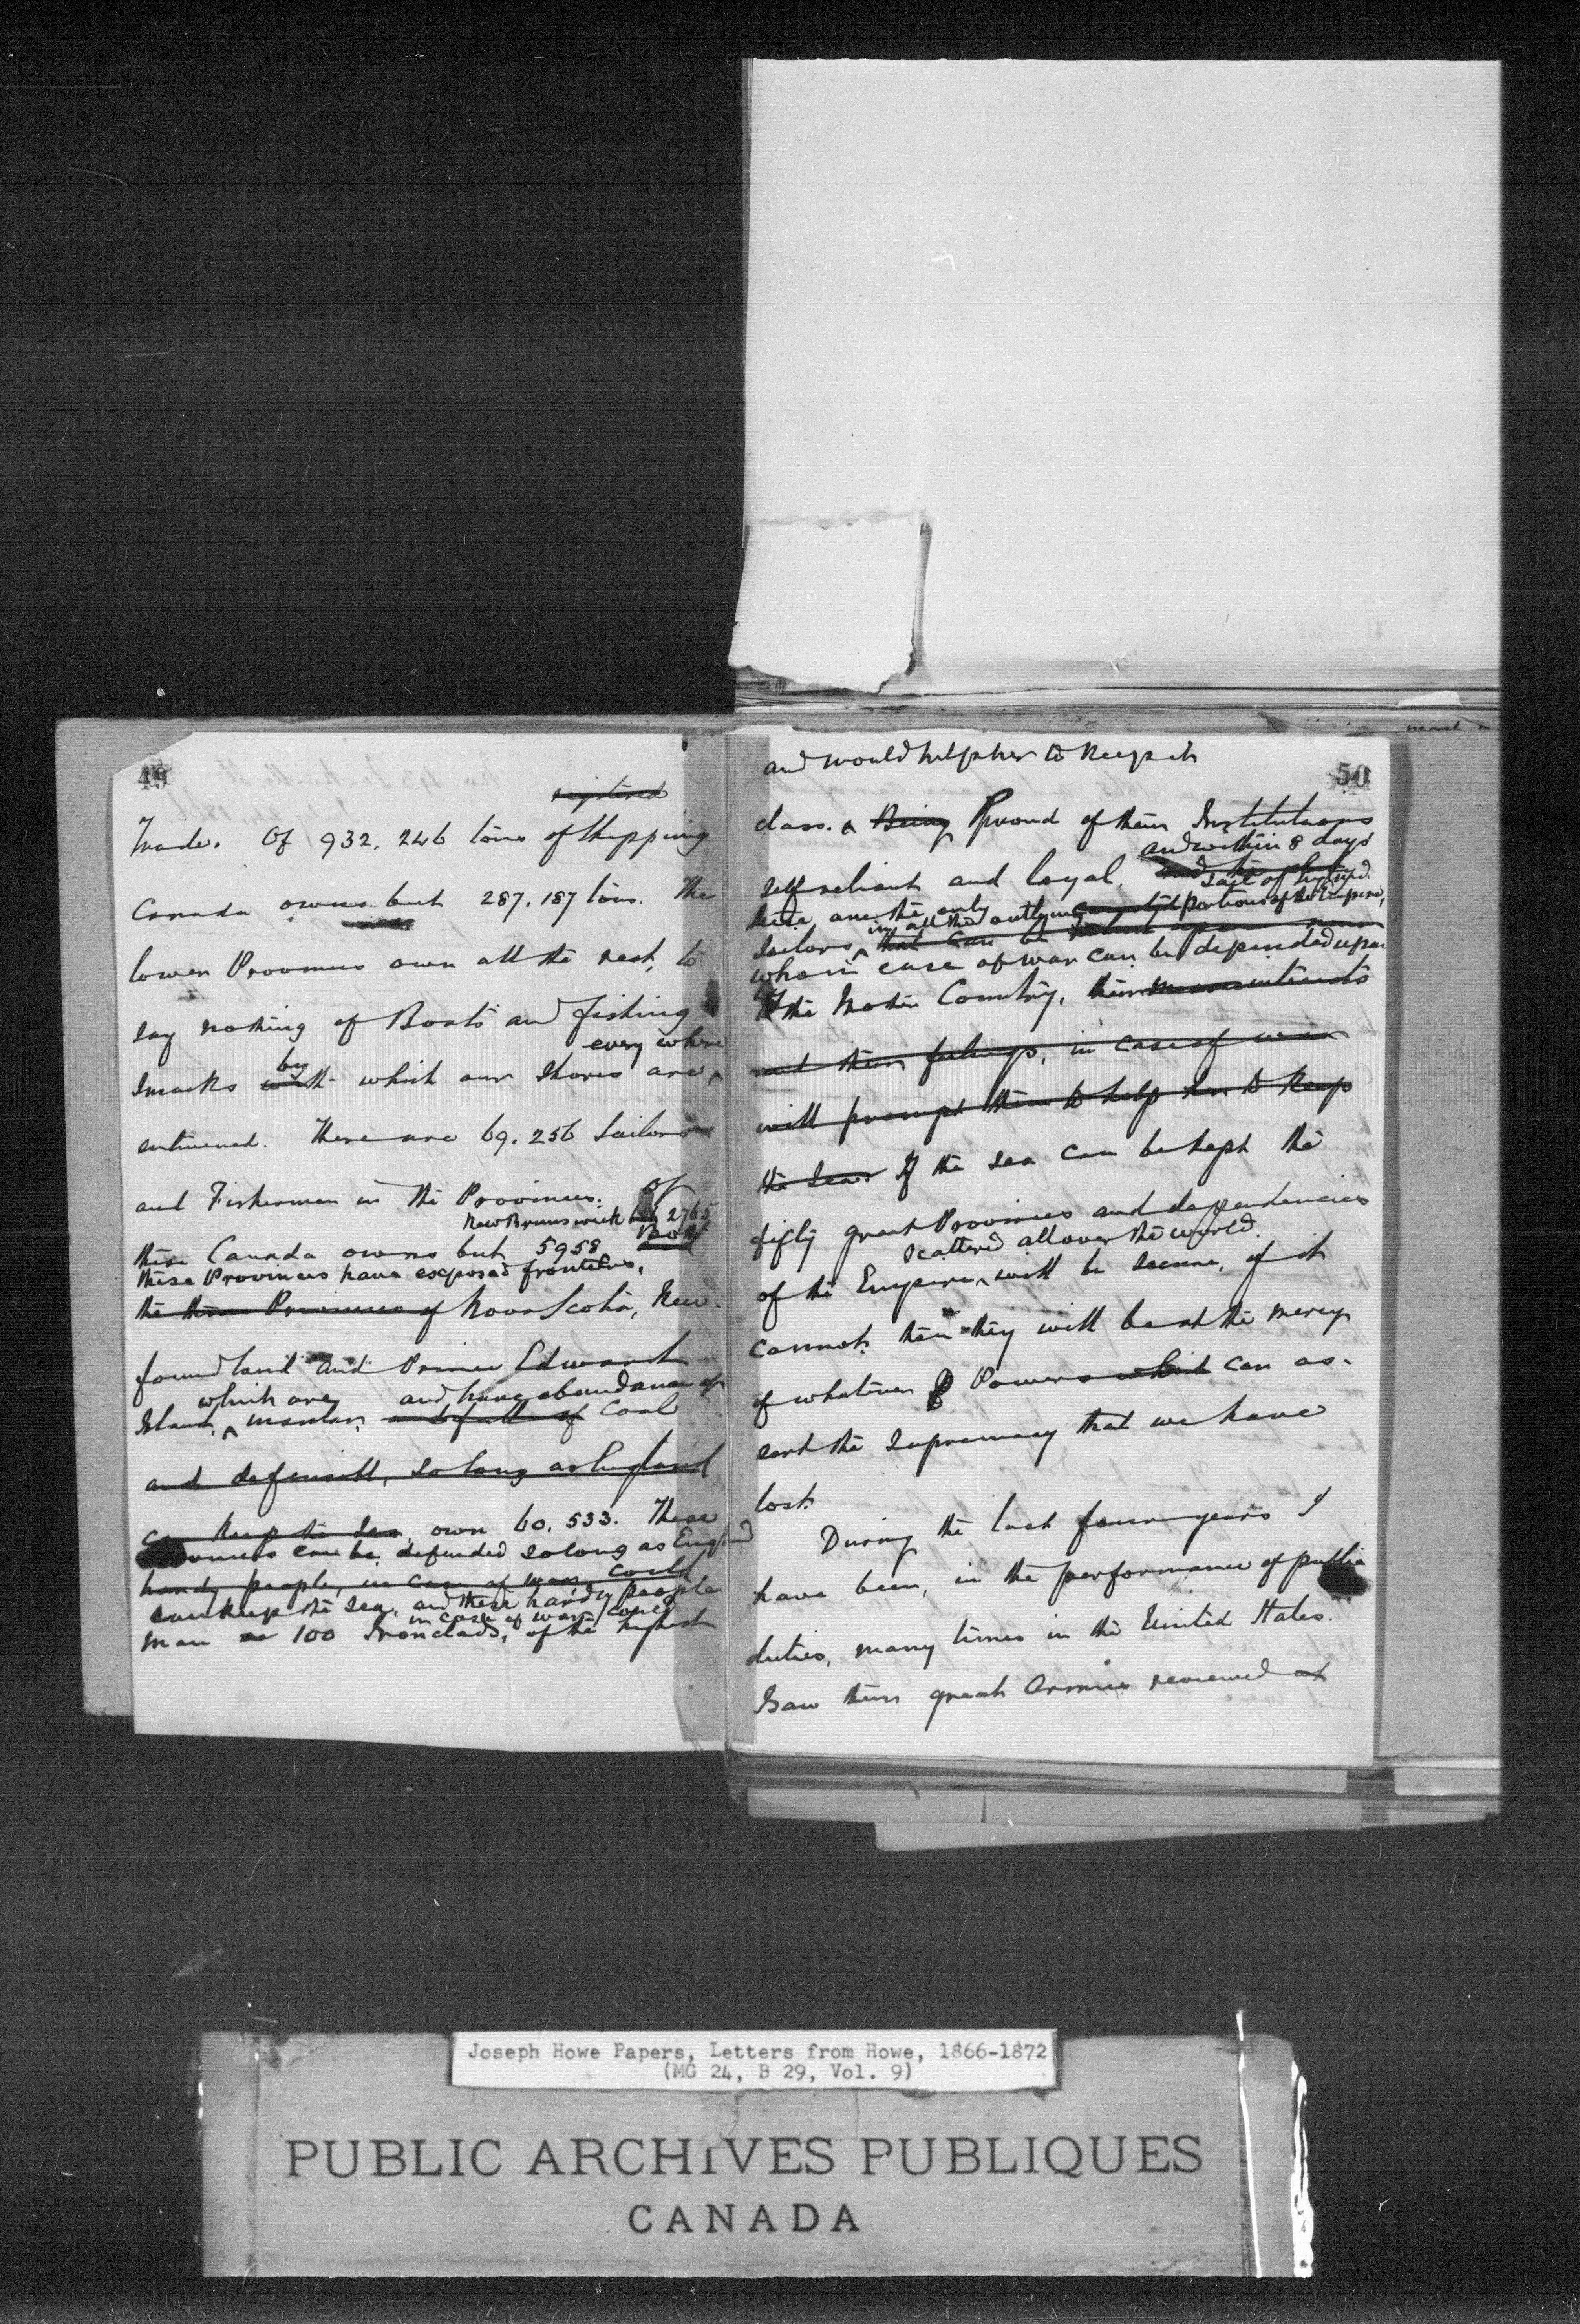 49
registered
Trade. Of 932.246 tons of Shipping
Canada owns but 287.187 tons. The
lower Provinces own all the rest, to
say nothing of Boats and fishing
every where
Smacks by with which our Shores are
enlivened. There are 69.256 Sailors
and Fishermen in the Provinces. Of
New Brunswick but 2765
these Canada owns but 5958 and Both
these Provinces have exposed frontiers,
the three Provinces of Nova Scotia, New-
foundland and Prince Edward
which are and have abundance of
Island, insular, and full of Coal
and defensible, so long as England
can keep the Sea, own 60.533. These
Provinces can be defended so long as England
handy people, in case of war, could
can keep the Sea, and these hardy people
in case of war could
man 100 Ironclads, of the highest
50
and would help her to keep it
class. Being Proud of their Institutions
and within 8 days'
self reliant and loyal,
sail of England.
these are the only
in all the outlying portions of the Empire,
Sailors that can be
who in case of war can be depended upon
the Mother Country,
and their feelings, in case of war
will prompt them to help her to keep
the Sea. If the sea can be kept the
fifty great Provinces and dependencies
scattered all over the world.
of the Empire will be secure, if it
cannot then they will be at the mercy
of whatever Powers which can as-
sert the supremacy that we have
lost.
During the last four years I
have been, in the performance of public
duties, many times in the United States.
I saw their great Armies reviewed at
Joseph Howe Papers, Letters from Howe, 1866-1872
(MG 24, B 29, Vol. 9)
PUBLIC ARCHIVES PUBLIQUES
CANADA